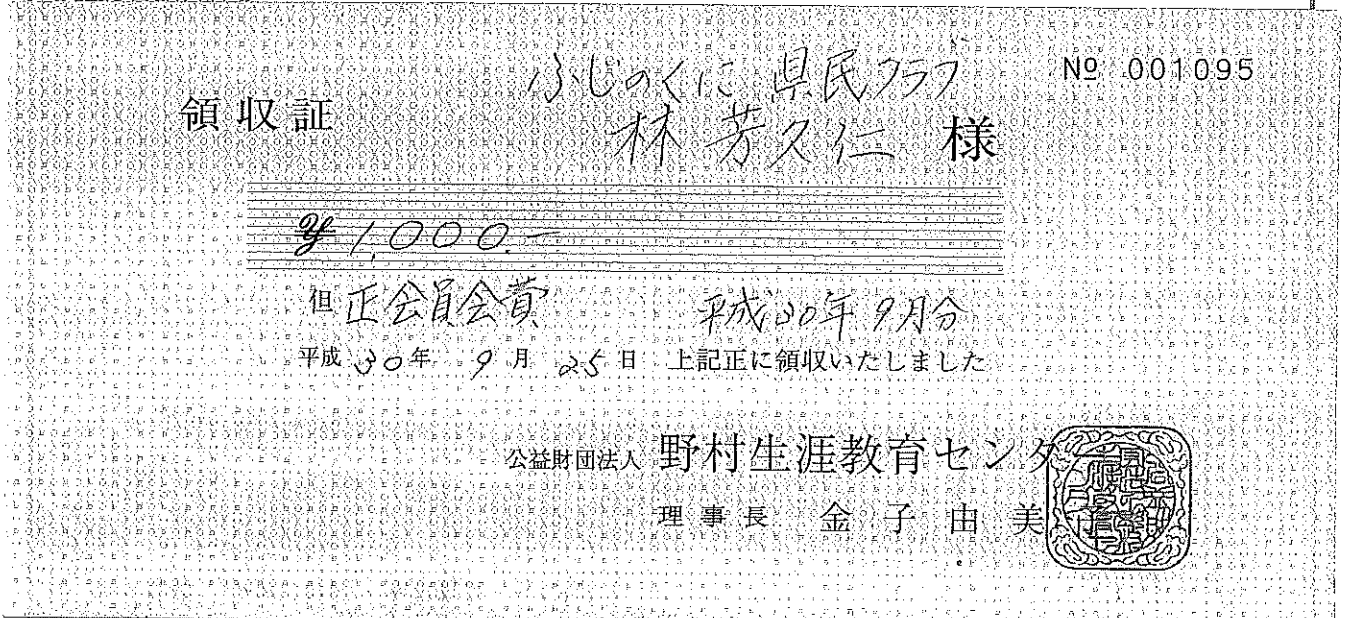 ふじのくに県民クラブ
№ 001095
領収証
林 芳久仁 様
¥1,000.-
但 正会員会費 平成30年9月分
平成 30年 9月 25日 上記正に領収いたしました
公益財団法人 野村生涯教育センター
理事長 金子由美子